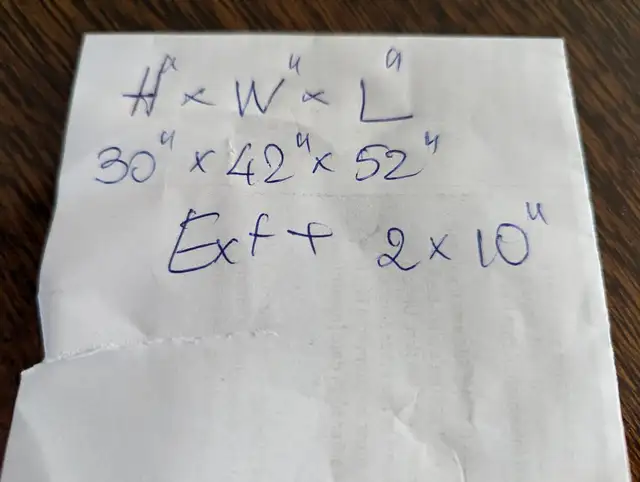 H" × W" × L"
30" × 42" × 52"
Ext + 2 × 10"